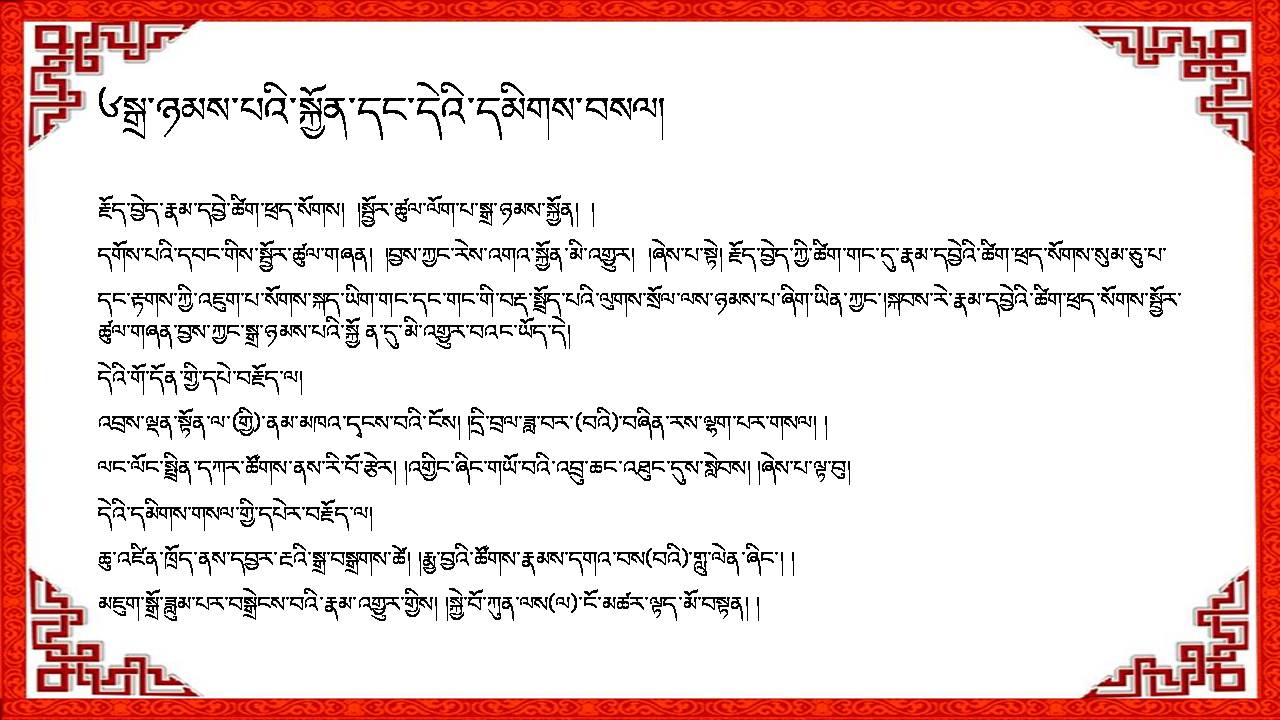 ༦སྒྲ་ཉམས་པའི་སྐྱོན་དང་དེའི་དམིགས་བསལ།
རྗོད་བྱེད་རྣམ་དབྱེ་ཚིག་ཕྲད་སོགས། །སྦྱོར་ཚུལ་ལོག་པ་སྒྲ་ཉམས་སྐྱོན། །
དགོས་པའི་དབང་གིས་སྦྱོར་ཚུལ་གཞན། །བྱས་ཀྱང་རེས་འགའ་སྐྱོན་མི་འགྱུར། །ཞེས་པ་སྟེ། རྗོད་བྱེད་ཀྱི་ཚིག་གང་དུ་རྣམ་དབྱེའི་ཚིག་ཕྲད་སོགས་སུམ་ཅུ་པ་
དང་རྟགས་ཀྱི་འཇུག་པ་སོགས་སྐད་ཡིག་གང་དང་གང་གི་བརྡ་སྤྲོད་པའི་ལུགས་སྲོལ་ལས་ཉམས་པ་ཞིག་ཡིན་ཀྱང་།སྐབས་རེ་རྣམ་དབྱེའི་ཚིག་ཕྲད་སོགས་སྦྱོར་
ཚུལ་གཞན་བྱས་ཀྱང་སྒྲ་ཉམས་པའི་སྐྱོ ན་དུ་མི་འགྱུར་བའང་ཡོད་དེ།
དེའི་གོ་དོན་གྱི་དཔེ་བརྗོད་ལ།
འབྲས་ལྡན་སྟོན་ལ་(གྱི)་ནམ་མཁའ་དྭངས་བའི་ངོས། །དྲི་བྲལ་ཟླ་བར་(བའི)་བཞིན་རས་ལྷག་པར་གསལ། །
ལང་ལོང་སྤྲིན་དཀར་ཚོགས་ནས་རི་བོ་རྩེར། །འགྱིང་ཞིང་གཡོ་བའི་འབྲུ་ཆང་འཐུང་དུས་སླེབས། །ཞེས་པ་ལྟ་བུ།
དེའི་དམིགས་གསལ་གྱི་དཔེར་བརྗོད་ལ།
ཆུ་འཛིན་ཁྲོད་ནས་དབྱར་རྔའི་སྒྲ་བསྒྲགས་ཚེ། །རྨ་བྱའི་ཚོགས་རྣམས་དགའ་བས(བའི)་གླུ་ལེན་ཞིང་། །
མཇུག་སྒྲོ་ཟླུམ་པར་བསྒྲེངས་བའི་རྣམ་འགྱུར་གྱིས། །སྐྱེ་བོ་ཀུན་ལས(ལ)་ངོ་མཚར་ལྟད་མོ་བསྟན། །